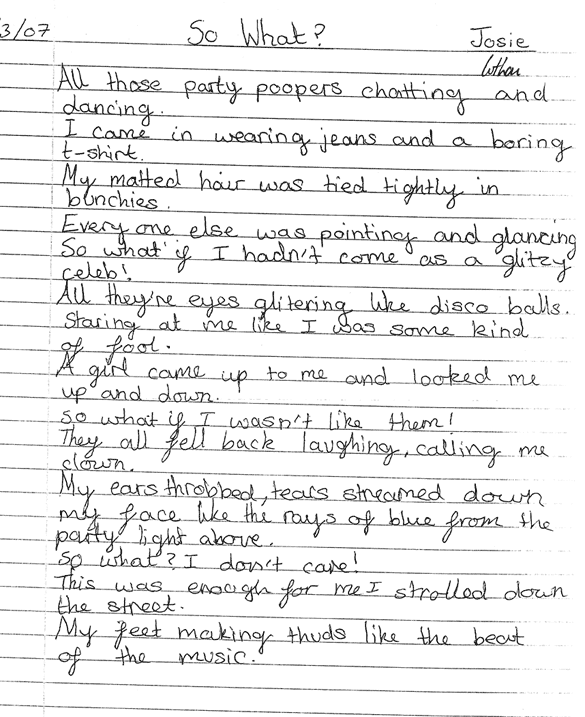 3/07 So What? Josie
All those party poopers chatting and
dancing.
I came in wearing jeans and a boring
t-shirt.
My matted hair was tied tightly in
bunchies.
Every one else was pointing and glancing
So what if I hadn't come as a glitzy
celeb!
All they're eyes glitering like disco balls.
Staring at me like I was some kind
of fool.
A girl came up to me and looked me
up and down.
So what if I wasn't like them!
They all fell back laughing, calling me
clown.
My ears throbbed, tears streamed down
my face like the rays of blue from the
party light above.
So what? I don't care!
This was enough for me I strolled down
the street.
My feet making thuds like the beat
of the music.